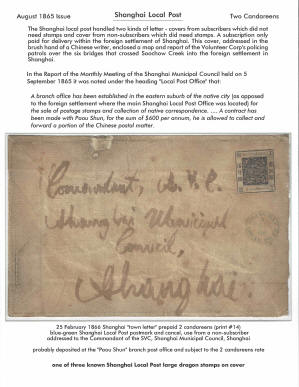 August 1865 Issue
Shanghai Local Post
Two Candareens
The Shanghai local post handled two kinds of letter - covers from subscribers which did not
need stamps and cover from non-subscribers which did need stamps. A subscription only
paid for delivery within the foreign settlement of Shanghai. This cover, addressed in the
brush hand of a Chinese writer, enclosed a map and report of the Volunteer Corp's policing
patrols over the six bridges that crossed Soochow Creek into the foreign settlement in
Shanghai.
In the Report of the Monthly Meeting of the Shanghai Municipal Council held on 5
September 1865 it was noted under the heading "Local Post Office" that:
A branch office has been established in the eastern suburb of the native city (as opposed
to the foreign settlement where the main Shanghai Local Post Office was located) for
the sale of postage stamps and collection of native correspondence. .... A contract has
been made with Paou Shun, for the sum of $600 per annum, he is allowed to collect and
forward a portion of the Chinese postal matter.
Comandant, S.V.C.
Shanghai Municipal
Council,
Shanghai.
25 February 1866 Shanghai "town letter" prepaid 2 candareens (print #14)
blue-green Shanghai Local Post postmark and cancel, use from a non-subscriber
addressed to the Commandant of the SVC, Shanghai Municipal Council, Shanghai
probably deposited at the "Paou Shun" branch post office and subject to the 2 candareens rate
one of three known Shanghai Local Post large dragon stamps on cover